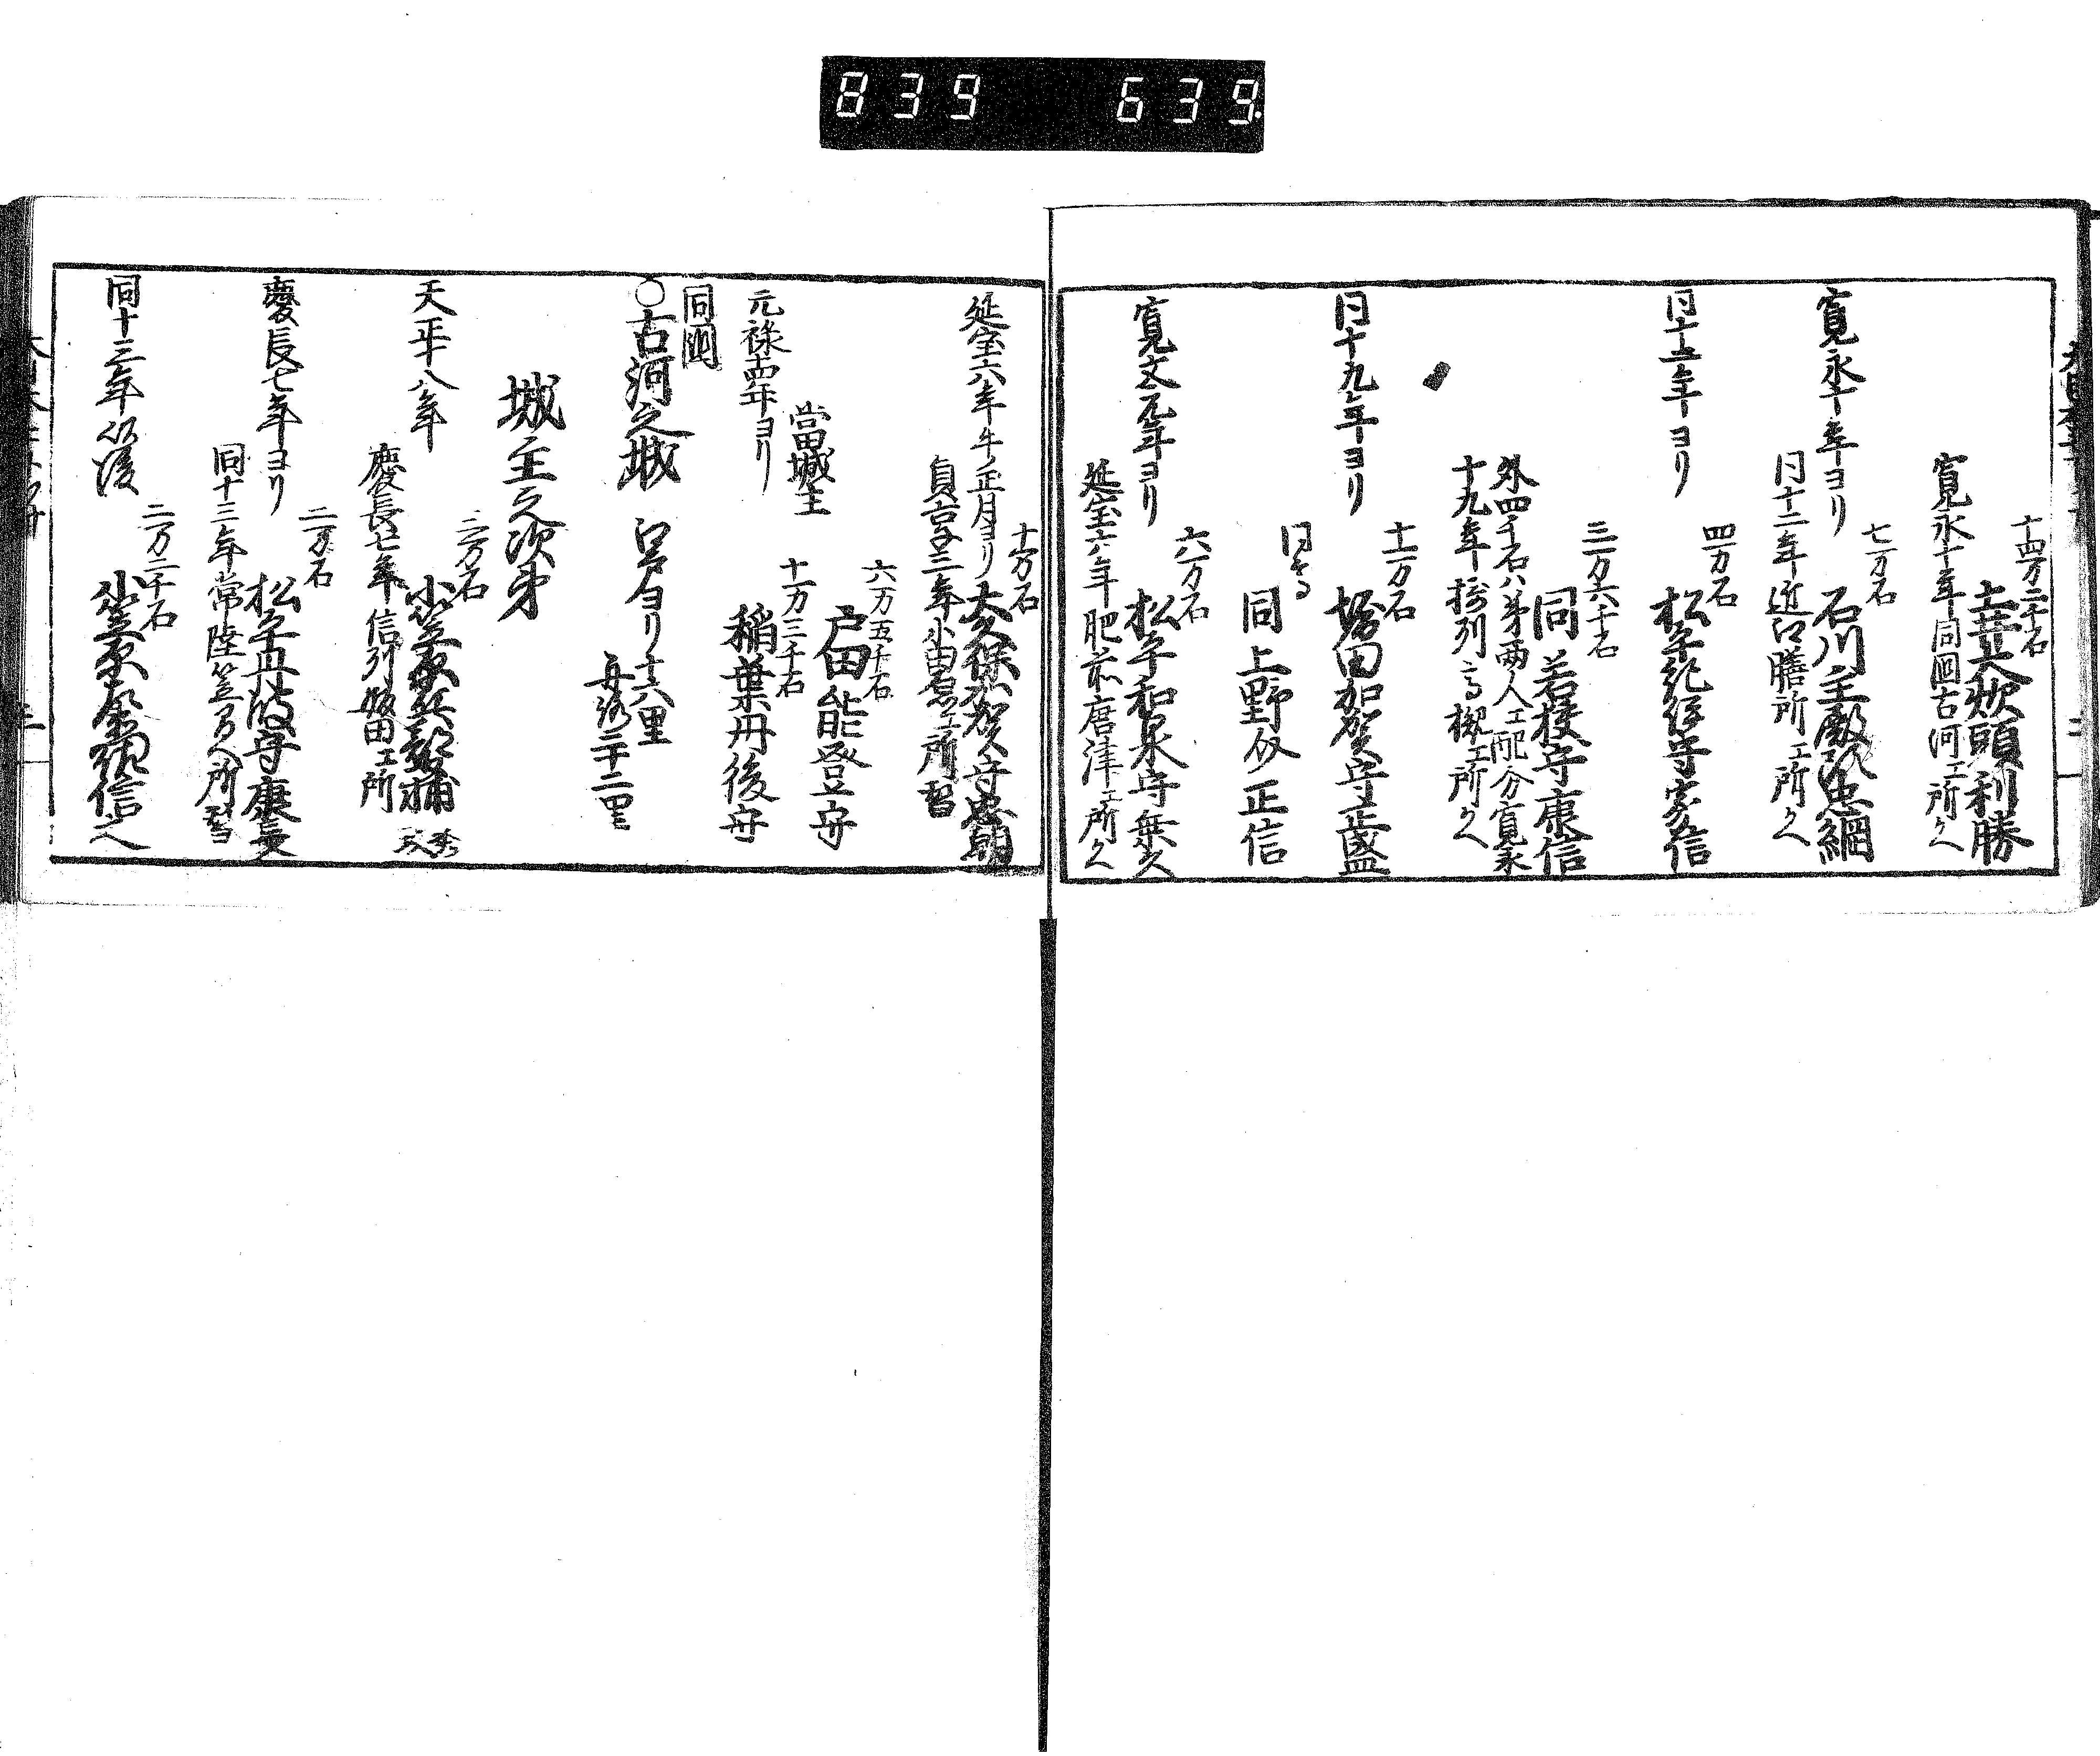 839 639
十四万二千石
土井大炊頭利勝
寛永十年同国古河エ所かへ
七万石
寛永十年ヨリ 石川主殿頭忠綱
同十二年近江膳所エ所かへ
四万石
同十二年ヨリ 松平紀伊守家信
三万六千石
同若狭守康信
外四千石ハ弟両人エ配分寛永
十九年摂列高槻エ所かへ
十一万石
同十九年ヨリ 堀田加賀守正盛
同
同上野介正信
六万石
寛文元年ヨリ 松平和泉守乗久
延宝六年肥前唐津エ所かへ
十万石
延宝六年午ノ正月ヨリ 大久保加賀守忠朝
貞享三年小田原エ所替
六万五千石
戸田能登守
當城主
十万三千石
元禄十四年ヨリ 稲葉丹後守
同国
○古河之城 江戸ヨリ十六里
舟路二十二里
城主之次第
三万石
天正十八年 小笠原兵部大輔秀政
慶長七年信列飯田エ所
二万石
慶長七年ヨリ 松平丹波守康長
同十三年常陸笠間へ所替
二万二千石
同十三年以後 小笠原左衛門佐信之